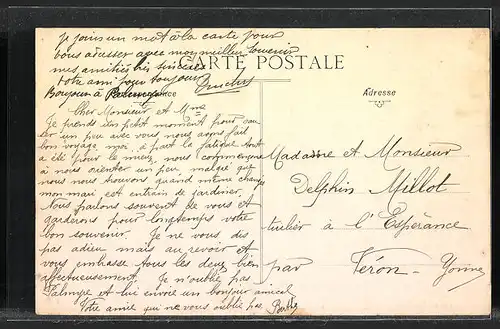 Je joins un mot à la carte pour
vous adresser avec mon meilleur souvenir
mes amitiés bien sincères
votre ami pour toujours
Bonjour à
CARTE POSTALE
Adresse
Cher Monsieur et Mme
Je prends un petit moment pour causer
un peu avec vous nous avons fait
bon voyage moi à part la fatigue tout
a été pour le mieux, nous commençons
à nous orienter un peu malgré que
nous nous trouvons quand même changés
mon mari est entrain de jardiner.
Nous parlons souvent de vous et
garderons pour longtemps votre
bon souvenir. Je ne vous dis
pas adieu mais au revoir et
vous embrasse tous les deux bien
affectueusement. Je n'oublie pas
Palmyre et lui envoie un bonjour amical
Votre amie qui ne vous oublie pas Berthe
Madame et Monsieur
Delphin Millot
tuilier à l'Espérance
par Véron Yonne